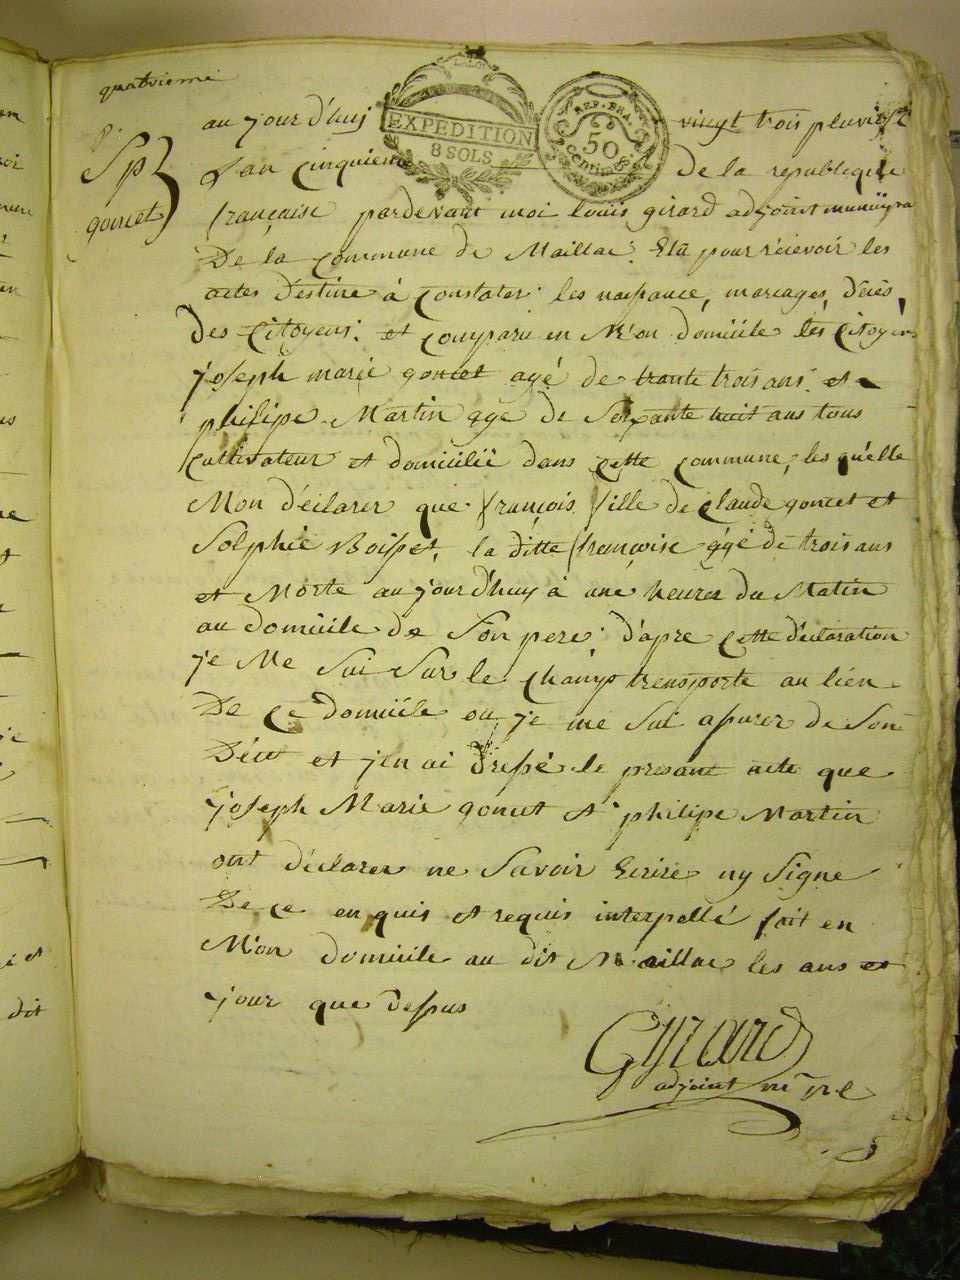 quatrieme
LA LOI
EXPEDITION
8 SOLS
REP. FRA.
50
centimes
Sp
goncet
au jour d'huj vingt trois pluviose
L'an Cinquieme de la republique
françaisse pardevant moi louis girard adjoint
De la Commune de Maillac Elu pour recievoir les
actes Destine à Constater les naissance, mariages, décés,
Des Citoyens. et Comparu en Mon domicile les Citoyen
joseph marie goncet agé de trante trois ans et
philipe Martin agé de Soixante huit ans tous
Cultivateur et domicilié dans Cette Commune, les quelle
Mon déclarer que françoise fille de Claude goncet et
Solphie Boisset, la ditte françoise agé de trois ans
et Morte au jourd'huy à une heures du Matin
au domicile de Son pere d'apre Cette déclaration
je Me Sui Sur le Champ transporte au lieu
De Ce domicile ou je me Sui assurer de Son
Décet et jen ai dressé le presant acte que
joseph Marie goncet et philipe Martin
ont déclarer ne Savoir Ecrire ny Signe
De Ce enquis et requis interpellé fait en
Mon domicile au dit Maillac les ans et
jour que dessus
Gyrard
adjoint